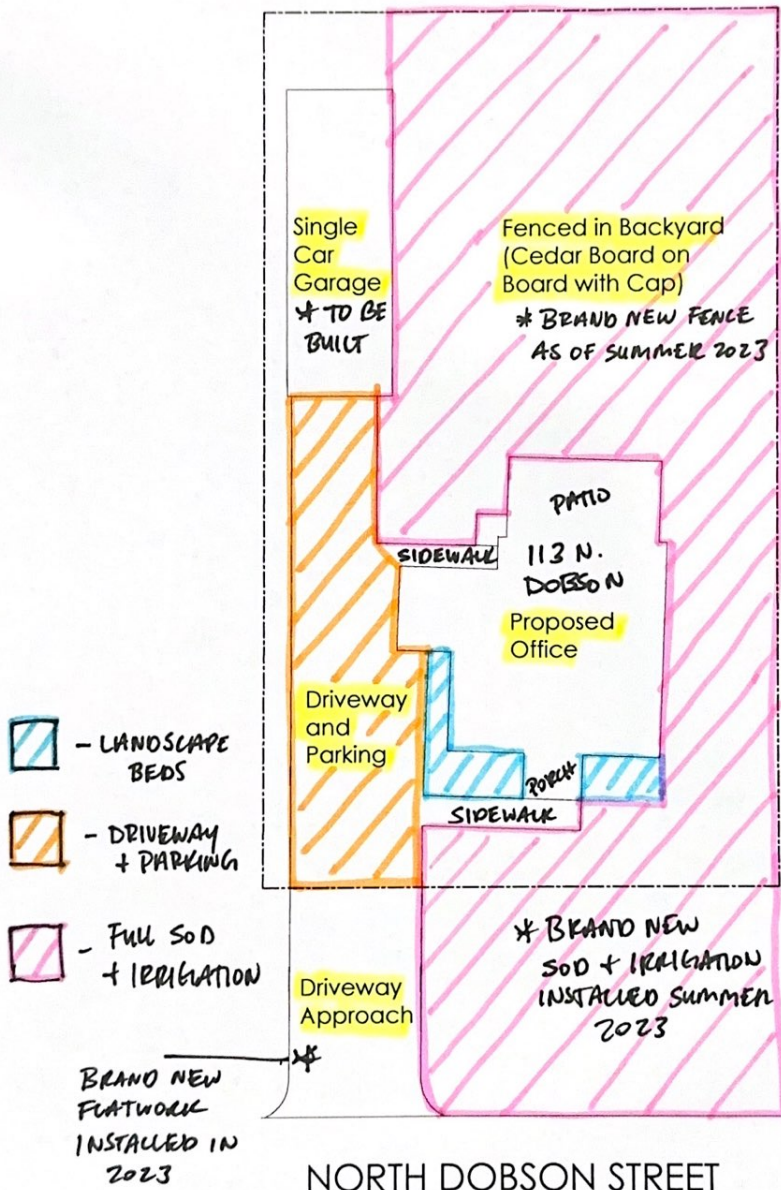 Single
Car
Garage
* TO BE
BUILT
Fenced in Backyard
(Cedar Board on
Board with Cap)
* BRAND NEW FENCE
AS OF SUMMER 2023
PATIO
SIDEWALK
113 N.
DOBSON
Proposed
Office
Driveway
and
Parking
PORCH
SIDEWALK
- LANDSCAPE
BEDS
- DRIVEWAY
+ PARKING
- FULL SOD
+ IRRIGATION
* BRAND NEW
SOD + IRRIGATION
INSTALLED SUMMER
2023
Driveway
Approach
*
BRAND NEW
FLATWORK
INSTALLED IN
2023
NORTH DOBSON STREET